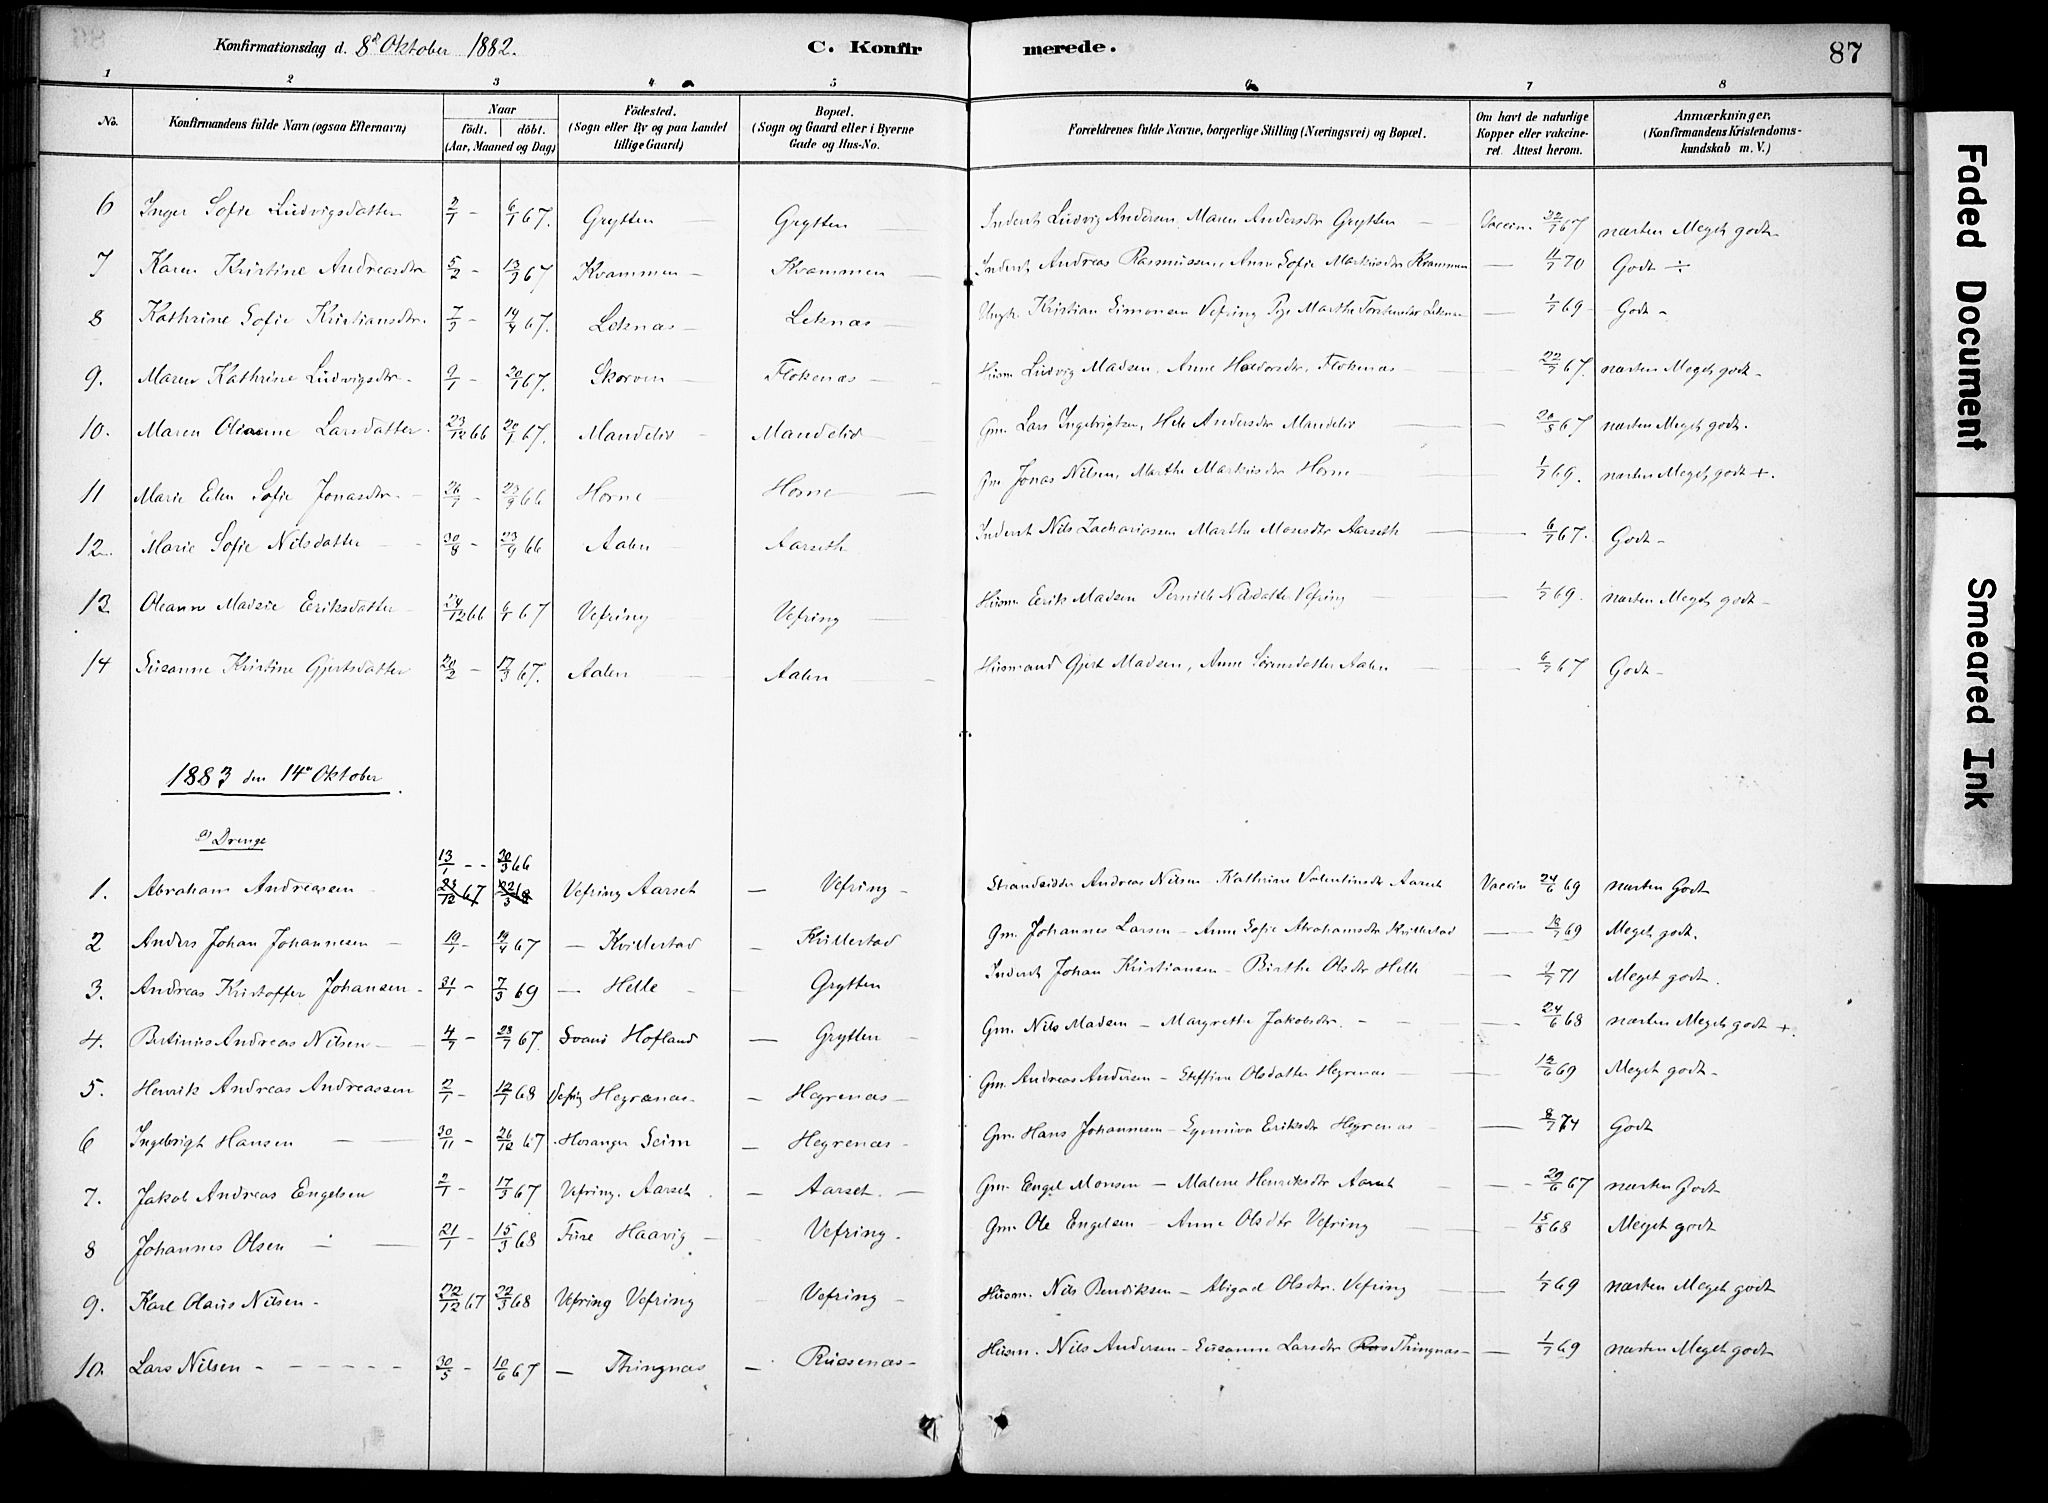 Konfirmationsdag d. 8de Oktober 1882. C. Konfirmerede. 87
1 2 3 4 5 6 7 8
No. Konfirmandens fulde Navn (ogsaa Efternavn) Naar födt. döbt. (Aar, Maaned og Dag) Födested. (Sogn eller By og paa Landet tillige Gaard) Bopæl. (Sogn og Gaard eller i Byerne Gade og Hus-No. Forældrenes fulde Navne, borgerlige Stilling (Næringsvei) og Bopæl. Om havt de naturlige Kopper eller vakcineret. Attest herom. Anmærkninger, (Konfirmandens Kristendomskundskab m. V.)
6 Inger Sofie Ludvigsdatter 2/1 - 6/1 67. Grytten Grytten Inderst Ludvig Andersen, Maren Andersdtr Grytten Vaccin. /7 67 næsten Meget godt
7 Karen Kristine Andreasdtr 5/2 - 13/3 67 Kvammen Kvammen Inderst Andreas Rasmussen, Anne Sofie Markusdtr Kvammen 11/7 70 Godt ÷
8 Kathrine Sofie Kristiansdtr. 7/3 - 14/4 67. Leknæs Leknæs Ungk. Kristian Simonsen Vefring Pige Marthe Leknæs 1/7 69 Godt -
9. Maren Kathrine Ludvigsdtr. 9/1 - 20/1 67. Skorven Flokenæs Husm Ludvig Madsen, Anne Flokenæs 22/7 67. næsten Meget godt -
10. Maren Olianne Larsdatter. 23/12 66 20/1 67. Mandelid Mandelid Gm. Lars Ingebrigtsen, Andersdtr Mandelid 20/8 67 næsten Meget godt.
11 Marie Elen Sofie Jonasdtr. 26/7 - 23/9 66 Horne Horne Gm Jonas Nilsen, Marthe Markusdtr Horne 1/7 69. næsten Meget godt +.
12. Marie Sofie Nilsdatter 30/8 - 23/9 66 Aalen Aarseth Inderst Nils Zachariassen Marthe Monsdtr Aarseth 6/7 67. Godt -
13. Oleanne Eriksdatter 24/12 66 6/1 67 Vefring Vefring Husm Erik Madsen Pernille Vefring 1/7 69. næsten Meget godt -
14 Susanne Kristine Gjertsdatter 20/2 - 17/3 67. Aalen Aalen Husmand Gjert Madsen, Anne Sørensdatter Aalen 6/7 67 Godt -
1883 den 14de Oktober.
a) Drenge
13/1 - - 30/3 66
1. Abraham Andreassen 23/12 67 22/3 68 Vefring Aarset — Vefring - Strandsidder Andreas Nilsen - Kathrine Valentinsdtr Aarset Vaccin 24/6 69 næsten Godt
2 Anders Johan Johannesen 10/1 - 14/4 67 — Kvillestad — Kvillestad Gm. Johannes Larsen - Anne Sofie Abrahamsdtr Kvillestad 18/7 69 Meget godt.
3. Andreas Kristoffer Johansen - 31/1 - 7/3 69 — Helle — Grytten Inderst Johan Kristiansen - Birthe Olsdtr Helle 1/7 71 Meget godt.
4. Bertinus Andreas Nilsen 4/7 - 23/7 67. Svanö Hofland — Grytten Gm. Nils Madsen - Margrethe Jakobsdtr. 24/6 68 næsten Meget godt +
5. Henrik Andreas Andreassen 2/1 - 12/1 68 Vefring Hegrenæs - — Hegrenæs Gm. Andreas Andersen - Steffine Olsdatter Hegrenæs 12/6 69 Meget godt -
6 Ingebrigt Hansen 30/11 - 26/12 67 Hosanger Seim — Hegrenæs Gm. Hans Johannesen - Synneva Eriksdtr Hegrenæs 8/7 74 Godt
7. Jakob Andreas Engelsen 2/1 - 17/3 67 Vefring. Aarset — Aarset. — Gm. Engel Monsen - Malene Henriksdtr Aarset 29/6 67 næsten Godt
8 Johannes Olsen 21/1 - 15/3 68 Füre Haavig Vefring. Gm. Ole Engelsen - Anne Olsdtr Vefring 15/8 68 Meget godt
9. Karl Olaus Nilsen - 22/12 67 22/3 68 Vefring Vefring Vefring — Husm. Nils Bendiksen - Abigael Olsdtr. Vefring 1/7 69 næsten Meget godt
10. Lars Nilsen - 30/5 - 10/6 67 — Thingnæs — Russenæs - Husm. Nils Andersen - Susanne Larsdtr Thingnæs - 1/7 69 næsten Meget godt
Faded Document
Smeared Ink